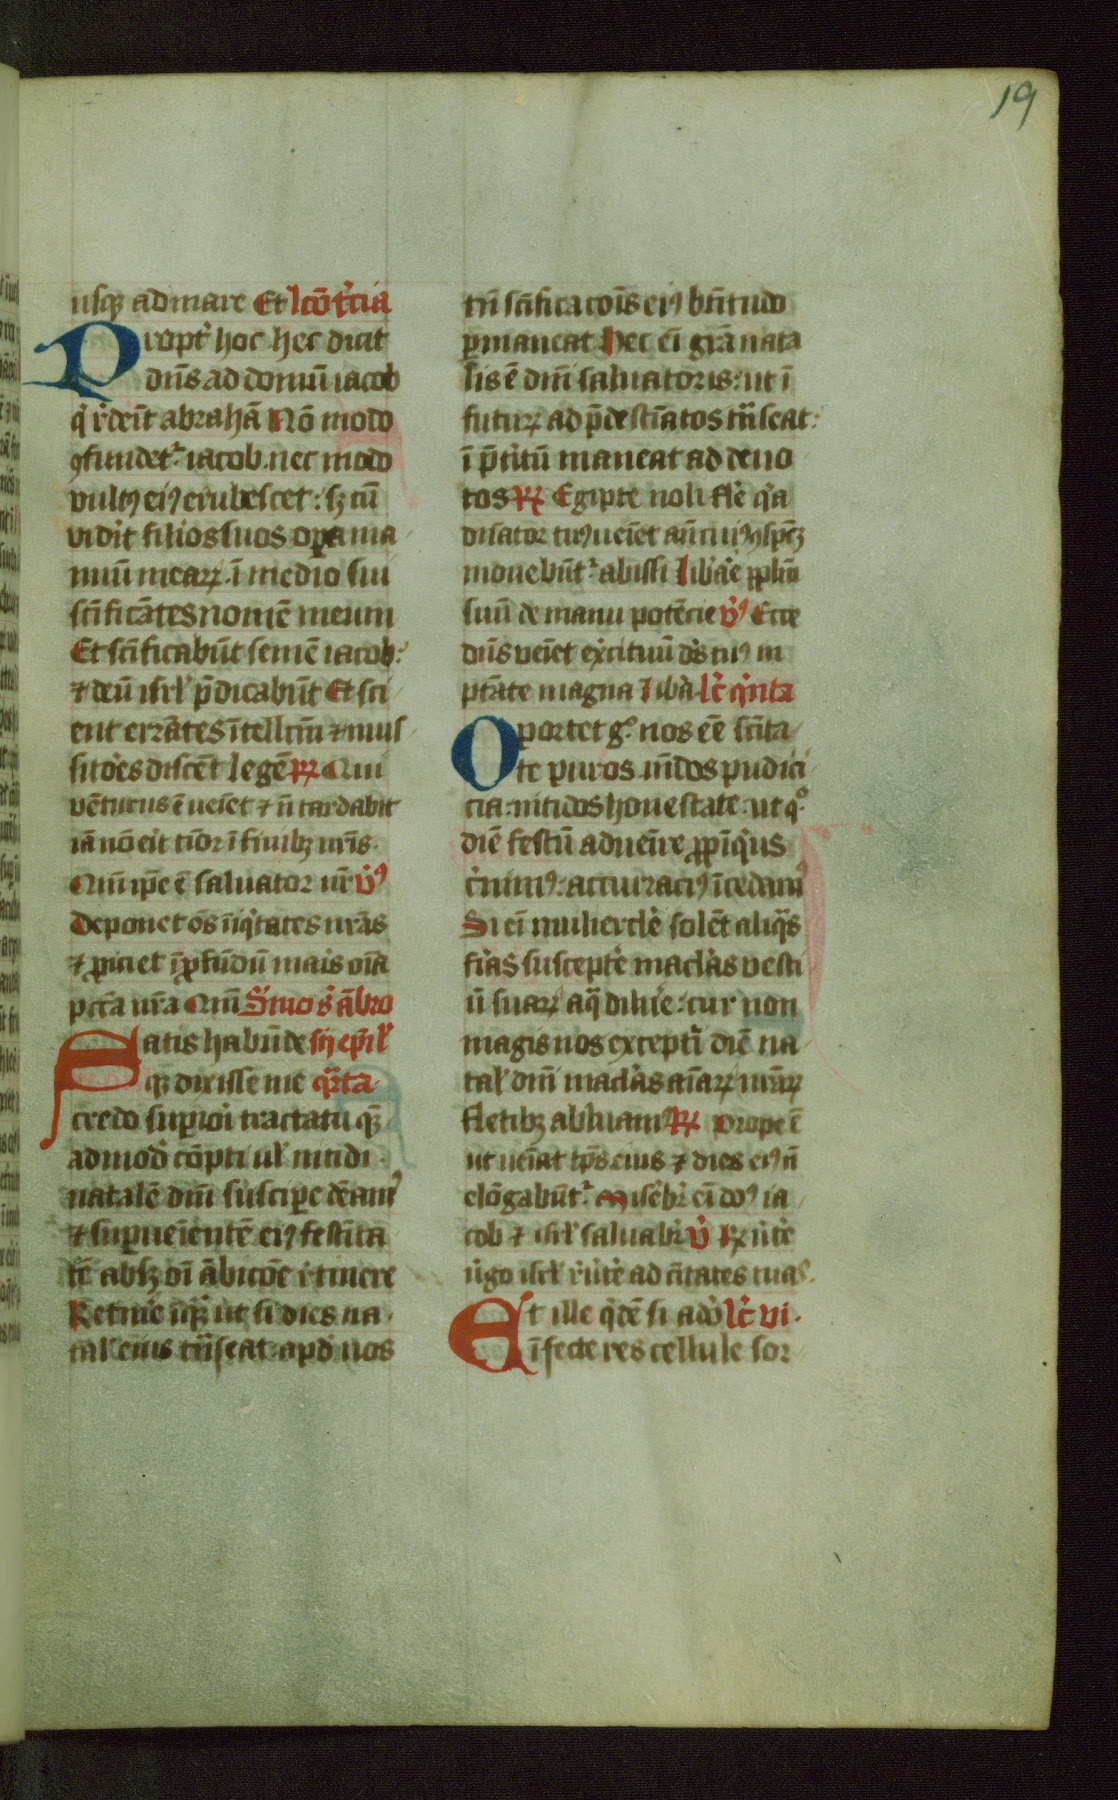 19
usq₃ ad mare Et lcō t'cia
Propt' hoc hec dicit
dn̄s ad domū iacob
q' r'demt abrahā Nō modo
ꝯfundet² iacob. nec modo
vultꝰ eiꝰ erubescet: sꝫ cū
vidit filios suos opera ma
nuū mearꝝ. ī medio sui
scīficātes nomē meum
Et scīficabūt semē iacob:
⁊ deū isrl' p̄dicabūt Et sci
ent errātes ītellcm̄ ⁊ mus
sitōes discēt legē ℟ Qui
vēturus ē veīet ⁊ n̄ tardabit
iā nō erit timor ī finibꝫ nr̄is.
Qm̄ ip̄e ē saluator nr̄ V'ꝰ
Deponet oēs īiq'tates nr̄as
⁊ ꝓiciet ī ꝓfūdū maris oīa
pctā nr̄a Qm̄ S'mo s' ābro
Satis habūde sij ep̄il'
q₃ dixisse me q̄rta
credo sup̱iori tractatu q̄
admodo cōpti ul' nitidi.
natalē dn̄i suscipe deamꝰ
⁊ sup̱ueīentē eiꝰ festīta
tē absꝫ oī ābicōe r'tinere
Retine īq̄ꝫ ut si dies na
tal' eius trāseat. apd' nos
tn̄ scīficacoīs eiꝰ btītudo
ꝑmaneat Hec eī grā nata
lis ē dn̄i saluatoris: ut ī
futurꝝ ad p̄destīatos trāseat:
ī p̄t'itū maneat ad deuo
tos ℟ Egipte noli fle' q'a
dn̄ator tuꝰ veīet an̄ cuiꝰ ꝯspc̄ꝫ
mouebūt² abissi Lib'ae' pplm̄
suū de manu potēcie V'ꝰ Ecce
dn̄s veīet ex'cituū d's tuꝰ in
ptāte magna Lib'a lc' q'nta
Oportet gͦ nos eē scīta
te puros. mūdos pudici
cia. nitidos honestate. ut qͦ
diē festū aduenire ꝓpīq'us
c'nimꝰ. accuraciꝰ īcedamꝰ
Si eī mulierc'le' solēt aliq's
fīas suscepte' macl'as vesti
ū suarꝝ aq̄ diluē: cur non
magis nos except'i diē na
tal' dn̄i macl'as aīarꝝ nr̄arꝝ
fletibꝫ abluamꝰ ℟ Prope ē
ut veīat tp̄s eius ⁊ dies eiꝰ n̄
elōgabūt² misēbr' eī dn̄s ia
cob ⁊ isrl' saluabr' V' R'ute'
v'go isrl' r'ute' ad c'itates tuas.
Et ille q'dē si ado lc' vi.
īfecte res cellule sor